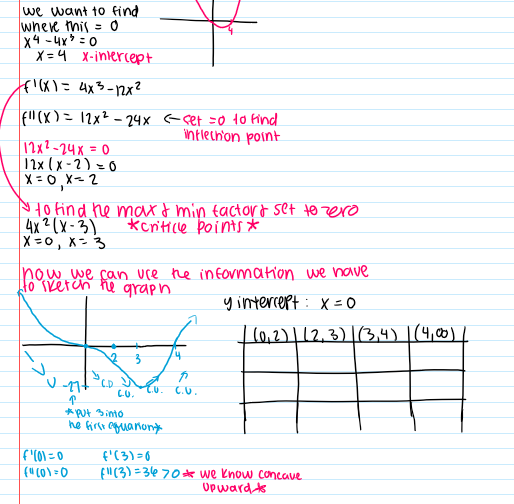 we want to find
where this = 0
x⁴-4x³=0
x=4 x-intercept
4
f'(x) = 4x³-12x²
f''(x) = 12x²-24x ← set =0 to find
inflection point
12x²-24x = 0
12x(x-2)=0
x=0, x=2
to find the max & min factor & set to zero
4x²(x-3) *critice points*
x=0, x=3
now we can use the information we have
to sketch the graph
y intercept: x=0
(0,2) (2,3) (3,4) (4,∞)
2 3 4
-27 C.D C.U. C.U. C.U.
*put 3 into
the first equation*
f'(0)=0 f'(3)=0
f''(0)=0 f''(3)=36>0 * we know concave
upward*